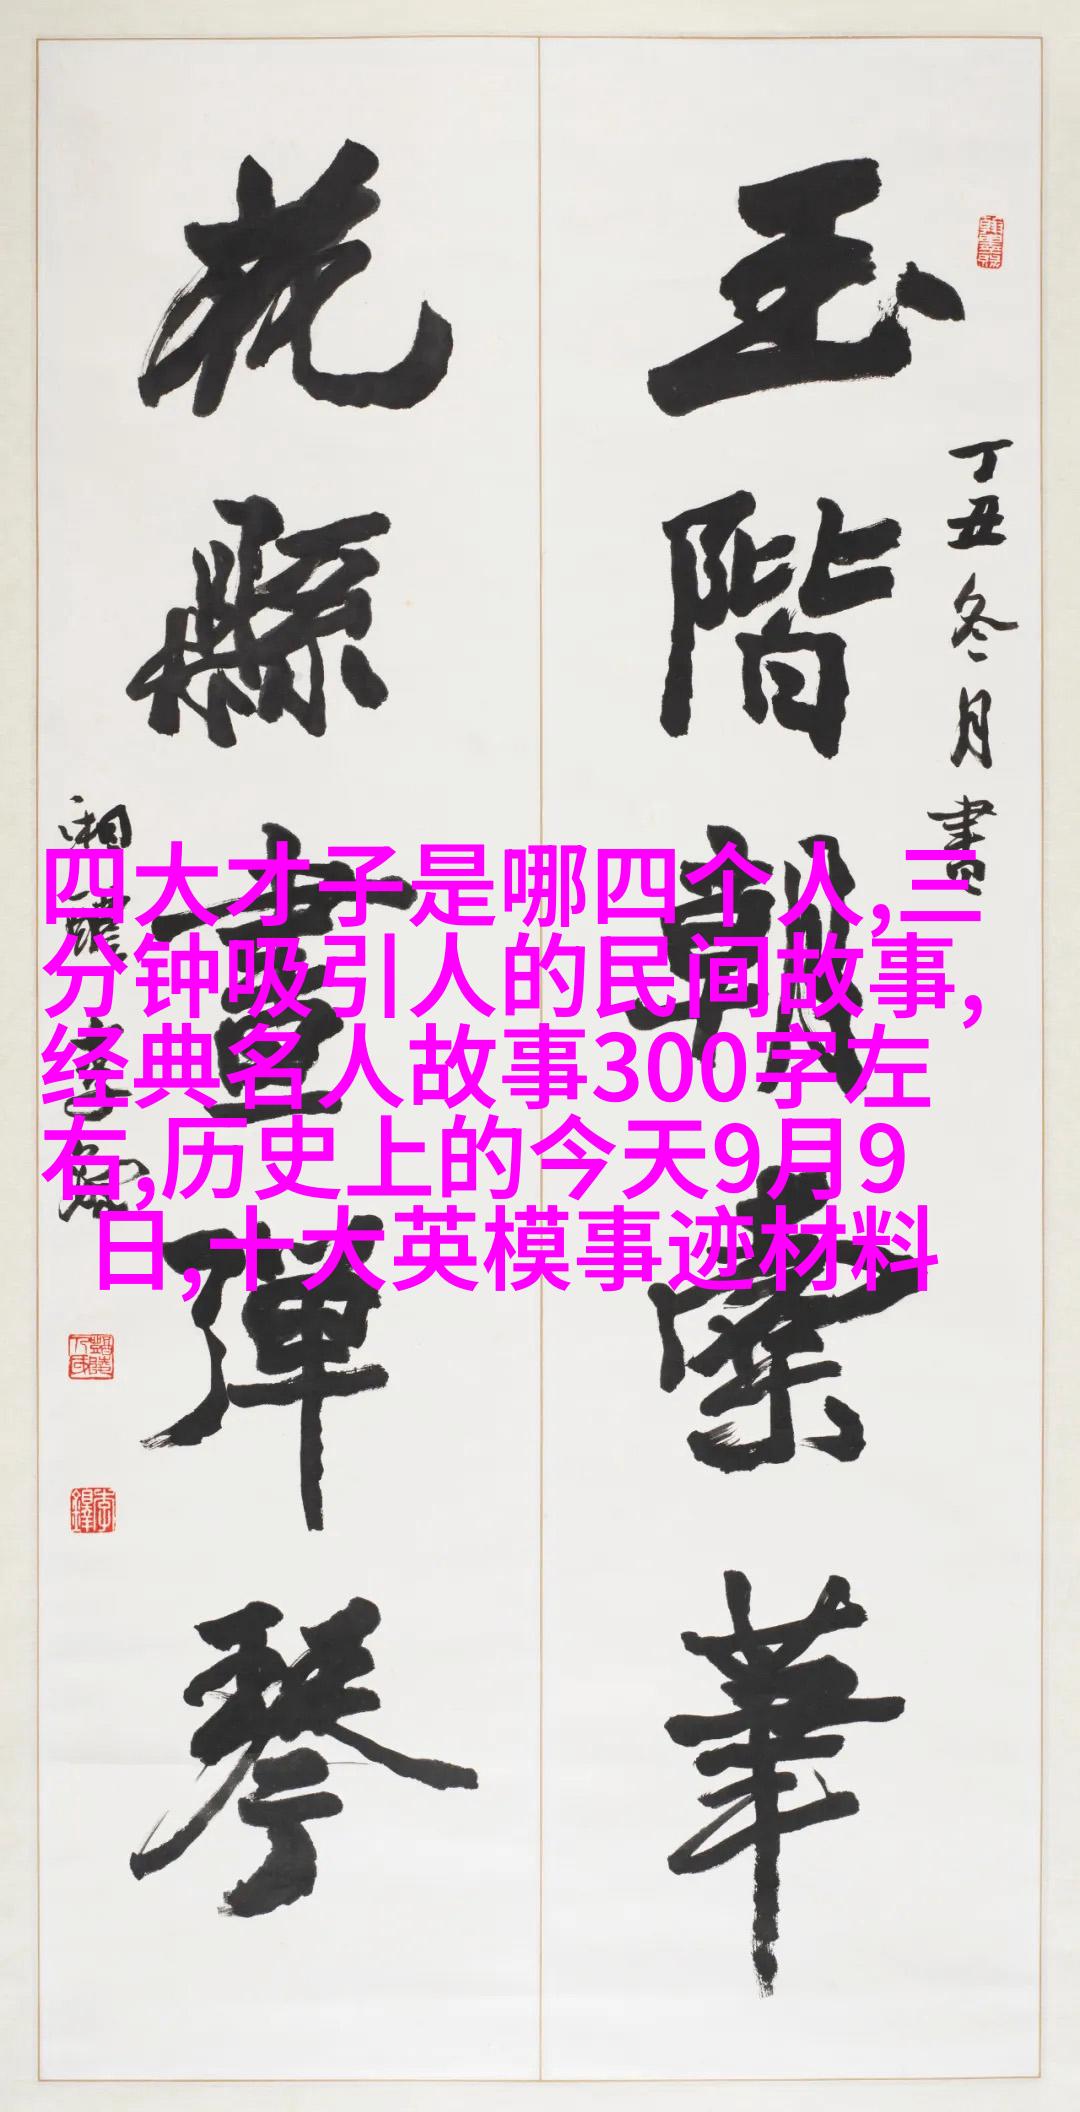 丁丑冬月書
玉階朝華
花縣晝彈琴
四大才子是哪四个人,三
分钟吸引人的民间故事,
经典名人故事300字左
右,历史上的今天9月9
日,十大英模事迹材料